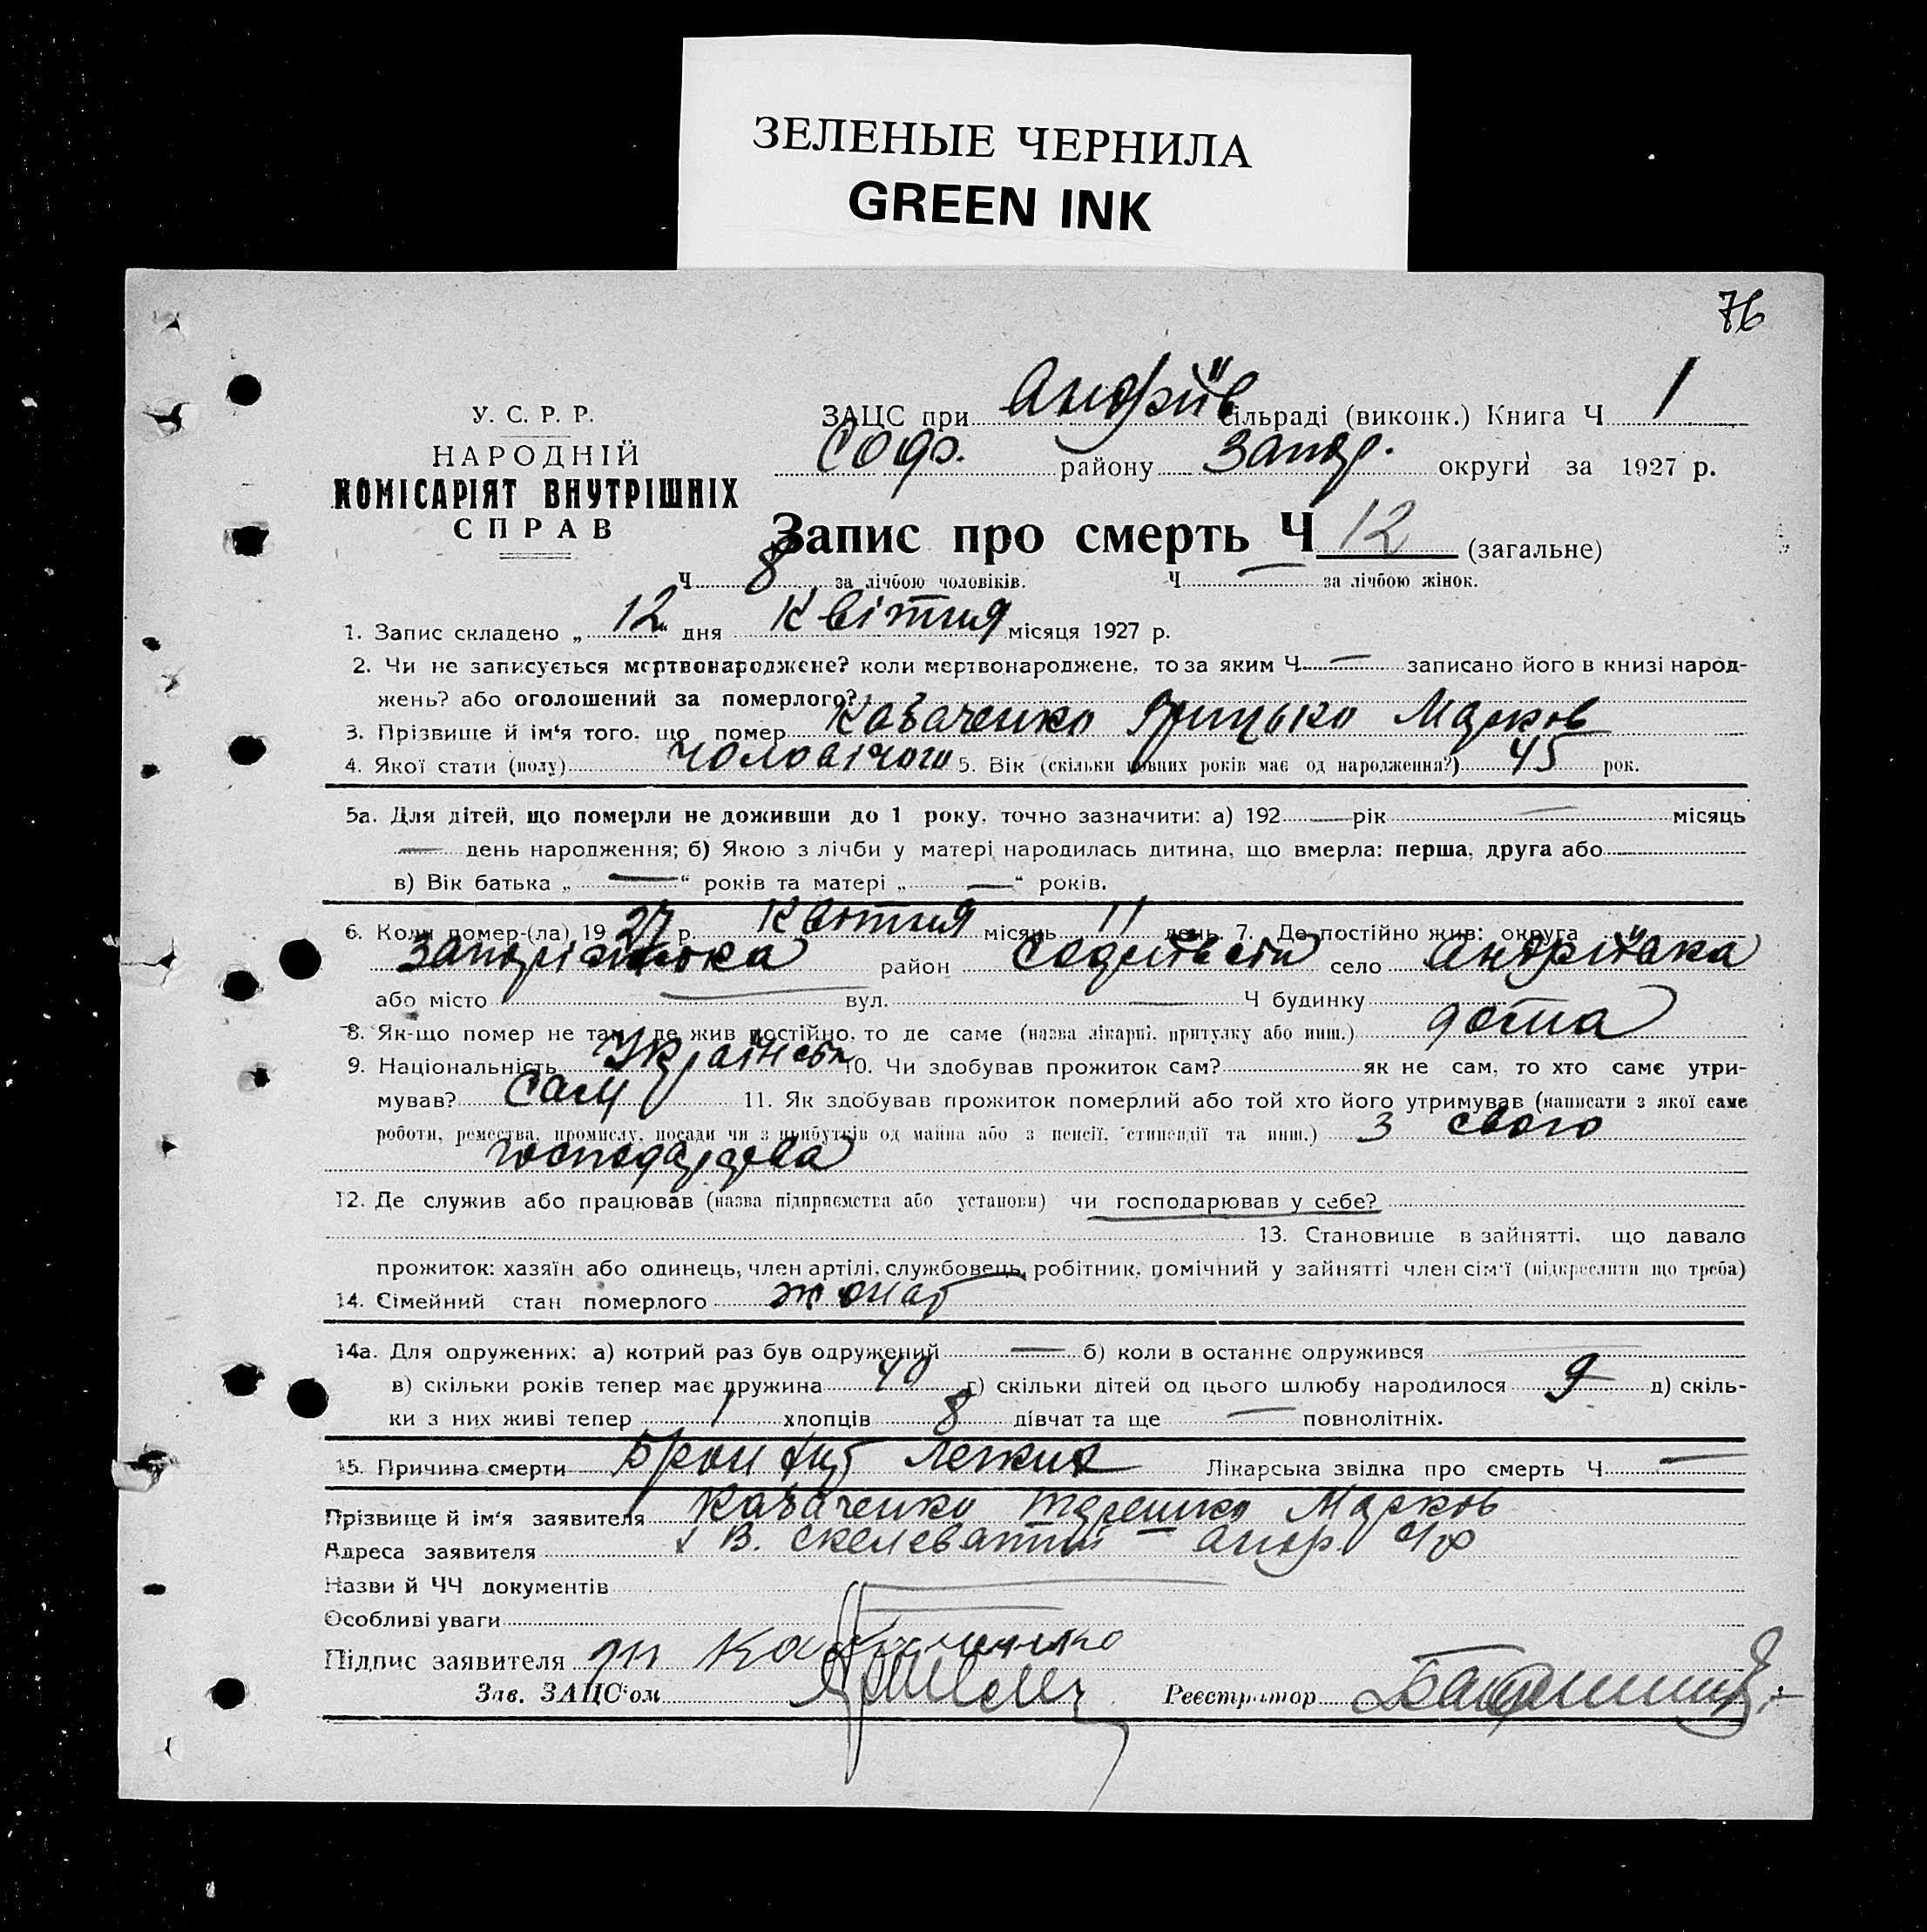 ЗЕЛЕНЫЕ ЧЕРНИЛА
GREEN INK
76
У. С. Р. Р.
НАРОДНІЙ
КОМІСАРІЯТ ВНУТРІШНІХ
СПРАВ
ЗАЦС при Андріїв сільраді (виконк.) Книга Ч 1
Соф. району Запор. округи за 1927 р.
Запис про смерть Ч 12 (загальне)
Ч 8 за лічбою чоловіків. Ч — за лічбою жінок.
1. Запис складено „ 12 " дня Квітня місяця 1927 р.
2. Чи не записується мертвонароджене? коли мертвонароджене, то за яким Ч — записано його в книзі народ-
жень? або оголошений за померлого?
3. Прізвище й ім'я того, що помер Козаченко Грицько Марков
4. Якої стати (полу) чоловічого 5. Вік (скільки повних років має од народження?) 45 рок.
5а. Для дітей, що померли не доживши до 1 року, точно зазначити: а) 192 — рік — місяць
— день народження; б) Якою з лічби у матері народилась дитина, що вмерла: перша, друга або
в) Вік батька „ — " років та матері „ — " років.
6. Коли помер-(ла) 19 27 р. Квітня місяць 11 день. 7. Де постійно жив: округа
Запорізька район село Андріївка
або місто — вул. — Ч будинку
8. Як-що помер не там, де жив постійно, то де саме (назва лікарні, притулку або инш.) дома
9. Національність Українська 10. Чи здобував прожиток сам? як не сам, то хто саме утри-
мував? сам 11. Як здобував прожиток померлий або той хто його утримував (написати з якої саме
роботи, ремества, промислу, посади чи з прибутків од майна або з пенсії, стипендії та инш.) З свого
господарства
12. Де служив або працював (назва підприємства або установи) чи господарював у себе?
13. Становище в зайнятті, що давало
прожиток: хазяїн або одинець, член артілі, службовець, робітник, помічний у зайнятті член сім'ї (підкреслити що треба)
14. Сімейний стан померлого жонат
14а. Для одружених: а) котрий раз був одружений — б) коли в останнє одружився —
в) скільки років тепер має дружина 40 г) скільки дітей од цього шлюбу народилося 9 д) скіль-
ки з них живі тепер 1 хлопців 8 дівчат та ще — повнолітніх.
15. Причина смерти Лікарська звідка про смерть Ч —
Прізвище й ім'я заявителя Козаченко Терешко Марков
Адреса заявителя В. Скелеватий
Назви й ЧЧ документів —
Особливі уваги —
Підпис заявителя Козаченко
Зав. ЗАЦС'ом
Реєстратор